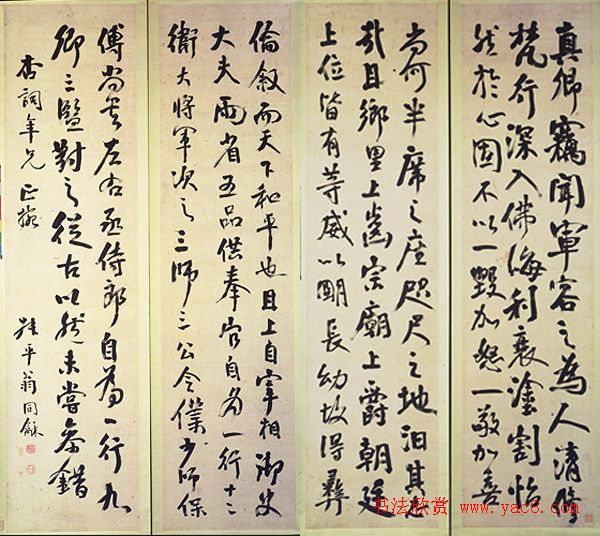 真卿竊聞軍容之為人清修
梵行深入佛海利衰塗割怡
然於心固不以一毀加怒一敬加喜
尚何半席之座咫尺之地汩其志
哉且鄉里上齒宗廟上爵朝廷
上位皆有等威以明長幼故得彝
倫敘而天下和平也且上自宰相御史
大夫兩省五品供奉官自為一行十二
衛大將軍次之三師三公令僕少師保
傅尚書左右丞侍郎自為一行九
卿三監對之從古以然未嘗參錯
杏詞年兄正
叔平翁同龢
书法欣赏
www.yac8.com